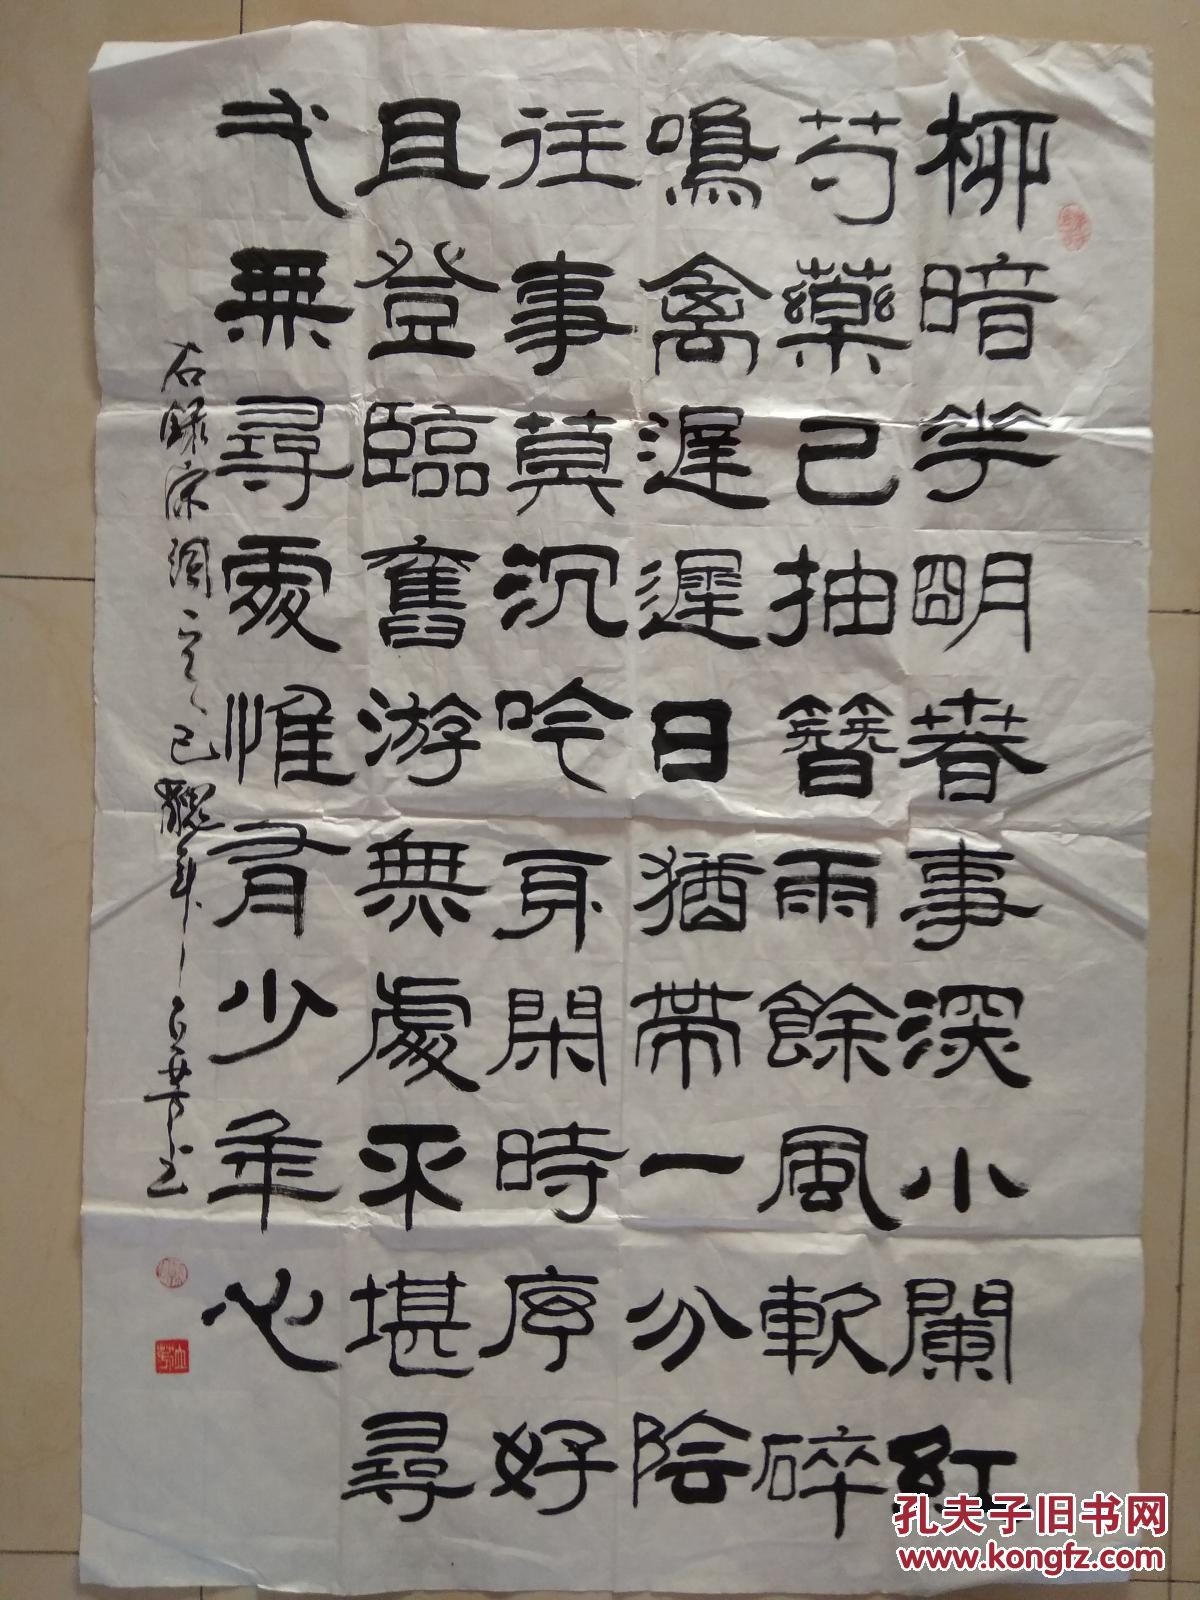 柳暗花明春事深小闌紅
芍藥已抽簪雨餘風軟碎
鳴禽遲遲日猶帶一分陰
往事莫沉吟身閑時序好
且登臨舊游無處不堪尋
無尋處惟有少年心
右録宋詞
孔夫子旧书网
www.kongfz.com